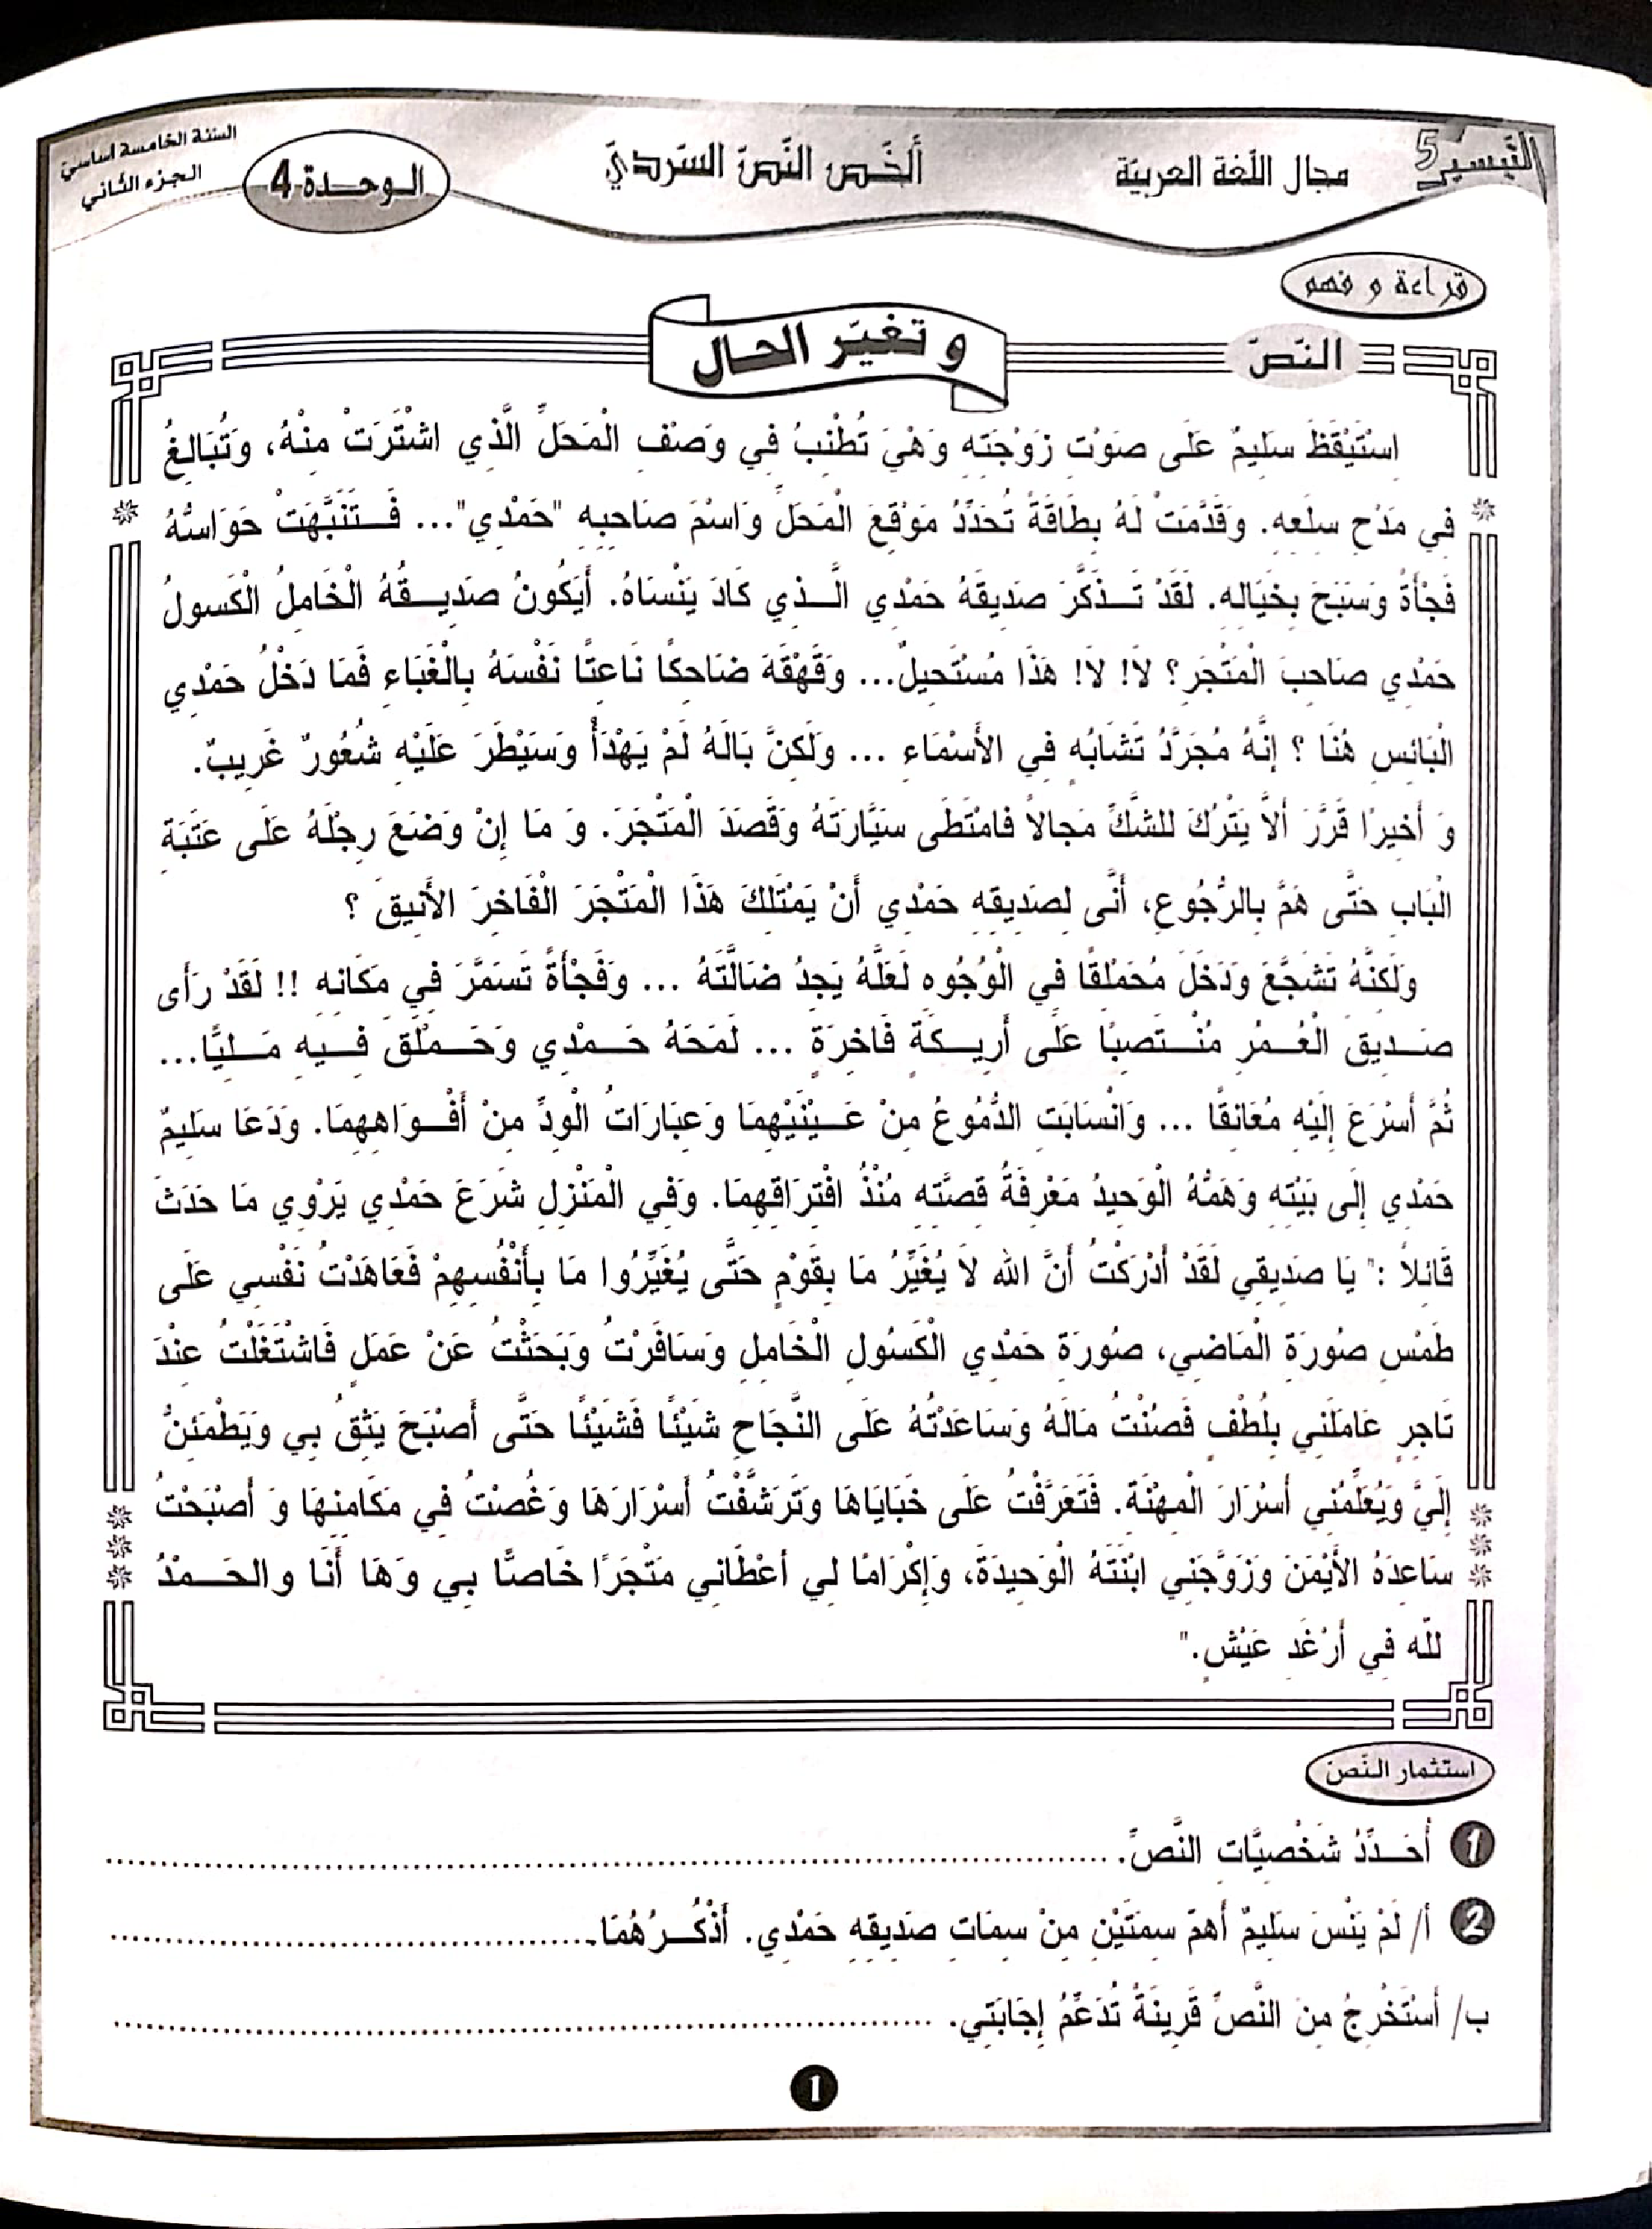 التيسير 5
مجال اللّغة العربيّة
ألخّص النّصّ السّرديّ
الوحدة 4
السنة الخامسة أساسيّ
الجزء الثّاني
قراءة و فهم
النّصّ
و تغيّر الحال
اسْتَيْقَظَ سَلِيمٌ عَلَى صَوْتِ زَوْجَتِهِ وَهْيَ تُطْنِبُ فِي وَصْفِ الْمَحَلِّ الَّذِي اشْتَرَتْ مِنْهُ، وَتُبَالِغُ
فِي مَدْحِ سِلَعِهِ. وَقَدَّمَتْ لَهُ بِطَاقَةً تُحَدِّدُ مَوْقِعَ الْمَحَلِّ وَاسْمَ صَاحِبِهِ "حَمْدِي"... فَـتَنَبَّهَتْ حَوَاسُّهُ
فَجْأَةً وَسَبَحَ بِخَيَالِهِ. لَقَدْ تَـذَكَّرَ صَدِيقَهُ حَمْدِي الَّـذِي كَادَ يَنْسَاهُ. أَيَكُونُ صَدِيـقُهُ الْخَامِلُ الْكَسُولُ
حَمْدِي صَاحِبَ الْمَتْجَرِ؟ لاَ! لاَ! هَذَا مُسْتَحِيلٌ... وَقَهْقَهَ ضَاحِكًا نَاعِتًا نَفْسَهُ بِالْغَبَاءِ فَمَا دَخْلُ حَمْدِي
الْبَائِسِ هُنَا ؟ إِنَّهُ مُجَرَّدُ تَشَابُهٍ فِي الأَسْمَاءِ ... وَلَكِنَّ بَالَهُ لَمْ يَهْدَأْ وَسَيْطَرَ عَلَيْهِ شُعُورٌ غَرِيبٌ.
وَ أَخِيرًا قَرَّرَ أَلاَّ يَتْرُكَ لِلشَّكِّ مَجَالاً فَامْتَطَى سَيَّارَتَهُ وَقَصَدَ الْمَتْجَرَ. وَ مَا إِنْ وَضَعَ رِجْلَهُ عَلَى عَتَبَةِ
الْبَابِ حَتَّى هَمَّ بِالرُّجُوعِ، أَنَّى لِصَدِيقِهِ حَمْدِي أَنْ يَمْتَلِكَ هَذَا الْمَتْجَرَ الْفَاخِرَ الأَنِيقَ ؟
وَلَكِنَّهُ تَشَجَّعَ وَدَخَلَ مُحَمْلِقًا فِي الْوُجُوهِ لَعَلَّهُ يَجِدُ ضَالَّتَهُ ... وَفَجْأَةً تَسَمَّرَ فِي مَكَانِهِ !! لَقَدْ رَأَى
صَـدِيقَ الْعُـمُرِ مُنْـتَصِبًا عَلَى أَرِيـكَةٍ فَاخِرَةٍ ... لَمَحَهُ حَـمْدِي وَحَـمْلَقَ فِـيهِ مَـلِيًّا...
ثُمَّ أَسْرَعَ إِلَيْهِ مُعَانِقًا ... وَانْسَابَتِ الدُّمُوعُ مِنْ عَـيْنَيْهِمَا وَعِبَارَاتُ الْوِدِّ مِنْ أَفْـوَاهِهِمَا. وَدَعَا سَلِيمٌ
حَمْدِي إِلَى بَيْتِهِ وَهَمُّهُ الْوَحِيدُ مَعْرِفَةُ قِصَّتِهِ مُنْذُ افْتِرَاقِهِمَا. وَفِي الْمَنْزِلِ شَرَعَ حَمْدِي يَرْوِي مَا حَدَثَ
قَائِلاً :" يَا صَدِيقِي لَقَدْ أَدْرَكْتُ أَنَّ الله لاَ يُغَيِّرُ مَا بِقَوْمٍ حَتَّى يُغَيِّرُوا مَا بِأَنْفُسِهِمْ فَعَاهَدْتُ نَفْسِي عَلَى
طَمْسِ صُورَةِ الْمَاضِي، صُورَةِ حَمْدِي الْكَسُولِ الْخَامِلِ وَسَافَرْتُ وَبَحَثْتُ عَنْ عَمَلٍ فَاشْتَغَلْتُ عِنْدَ
تَاجِرٍ عَامَلَنِي بِلُطْفٍ فَصُنْتُ مَالَهُ وَسَاعَدْتُهُ عَلَى النَّجَاحِ شَيْئًا فَشَيْئًا حَتَّى أَصْبَحَ يَثِقُ بِي وَيَطْمَئِنُّ
إِلَيَّ وَيُعَلِّمُنِي أَسْرَارَ الْمِهْنَةِ. فَتَعَرَّفْتُ عَلَى خَبَايَاهَا وَتَرَشَّفْتُ أَسْرَارَهَا وَغُصْتُ فِي مَكَامِنِهَا وَ أَصْبَحْتُ
سَاعِدَهُ الأَيْمَنَ وَزَوَّجَنِي ابْنَتَهُ الْوَحِيدَةَ، وَإِكْرَامًا لِي أَعْطَانِي مَتْجَرًا خَاصًّا بِي وَهَا أَنَا والْحَـمْدُ
لله فِي أَرْغَدِ عَيْشٍ."
استثمار النّصّ
1 أُحَـدِّدُ شَخْصِيَّاتِ النَّصِّ. ........................................
2 أ/ لَمْ يَنْسَ سَلِيمٌ أَهَمَّ سِمَتَيْنِ مِنْ سِمَاتِ صَدِيقِهِ حَمْدِي. أَذْكُـرُهُمَا. ........................................
ب/ أَسْتَخْرِجُ مِنَ النَّصِّ قَرِينَةً تُدَعِّمُ إِجَابَتِي. ........................................
1